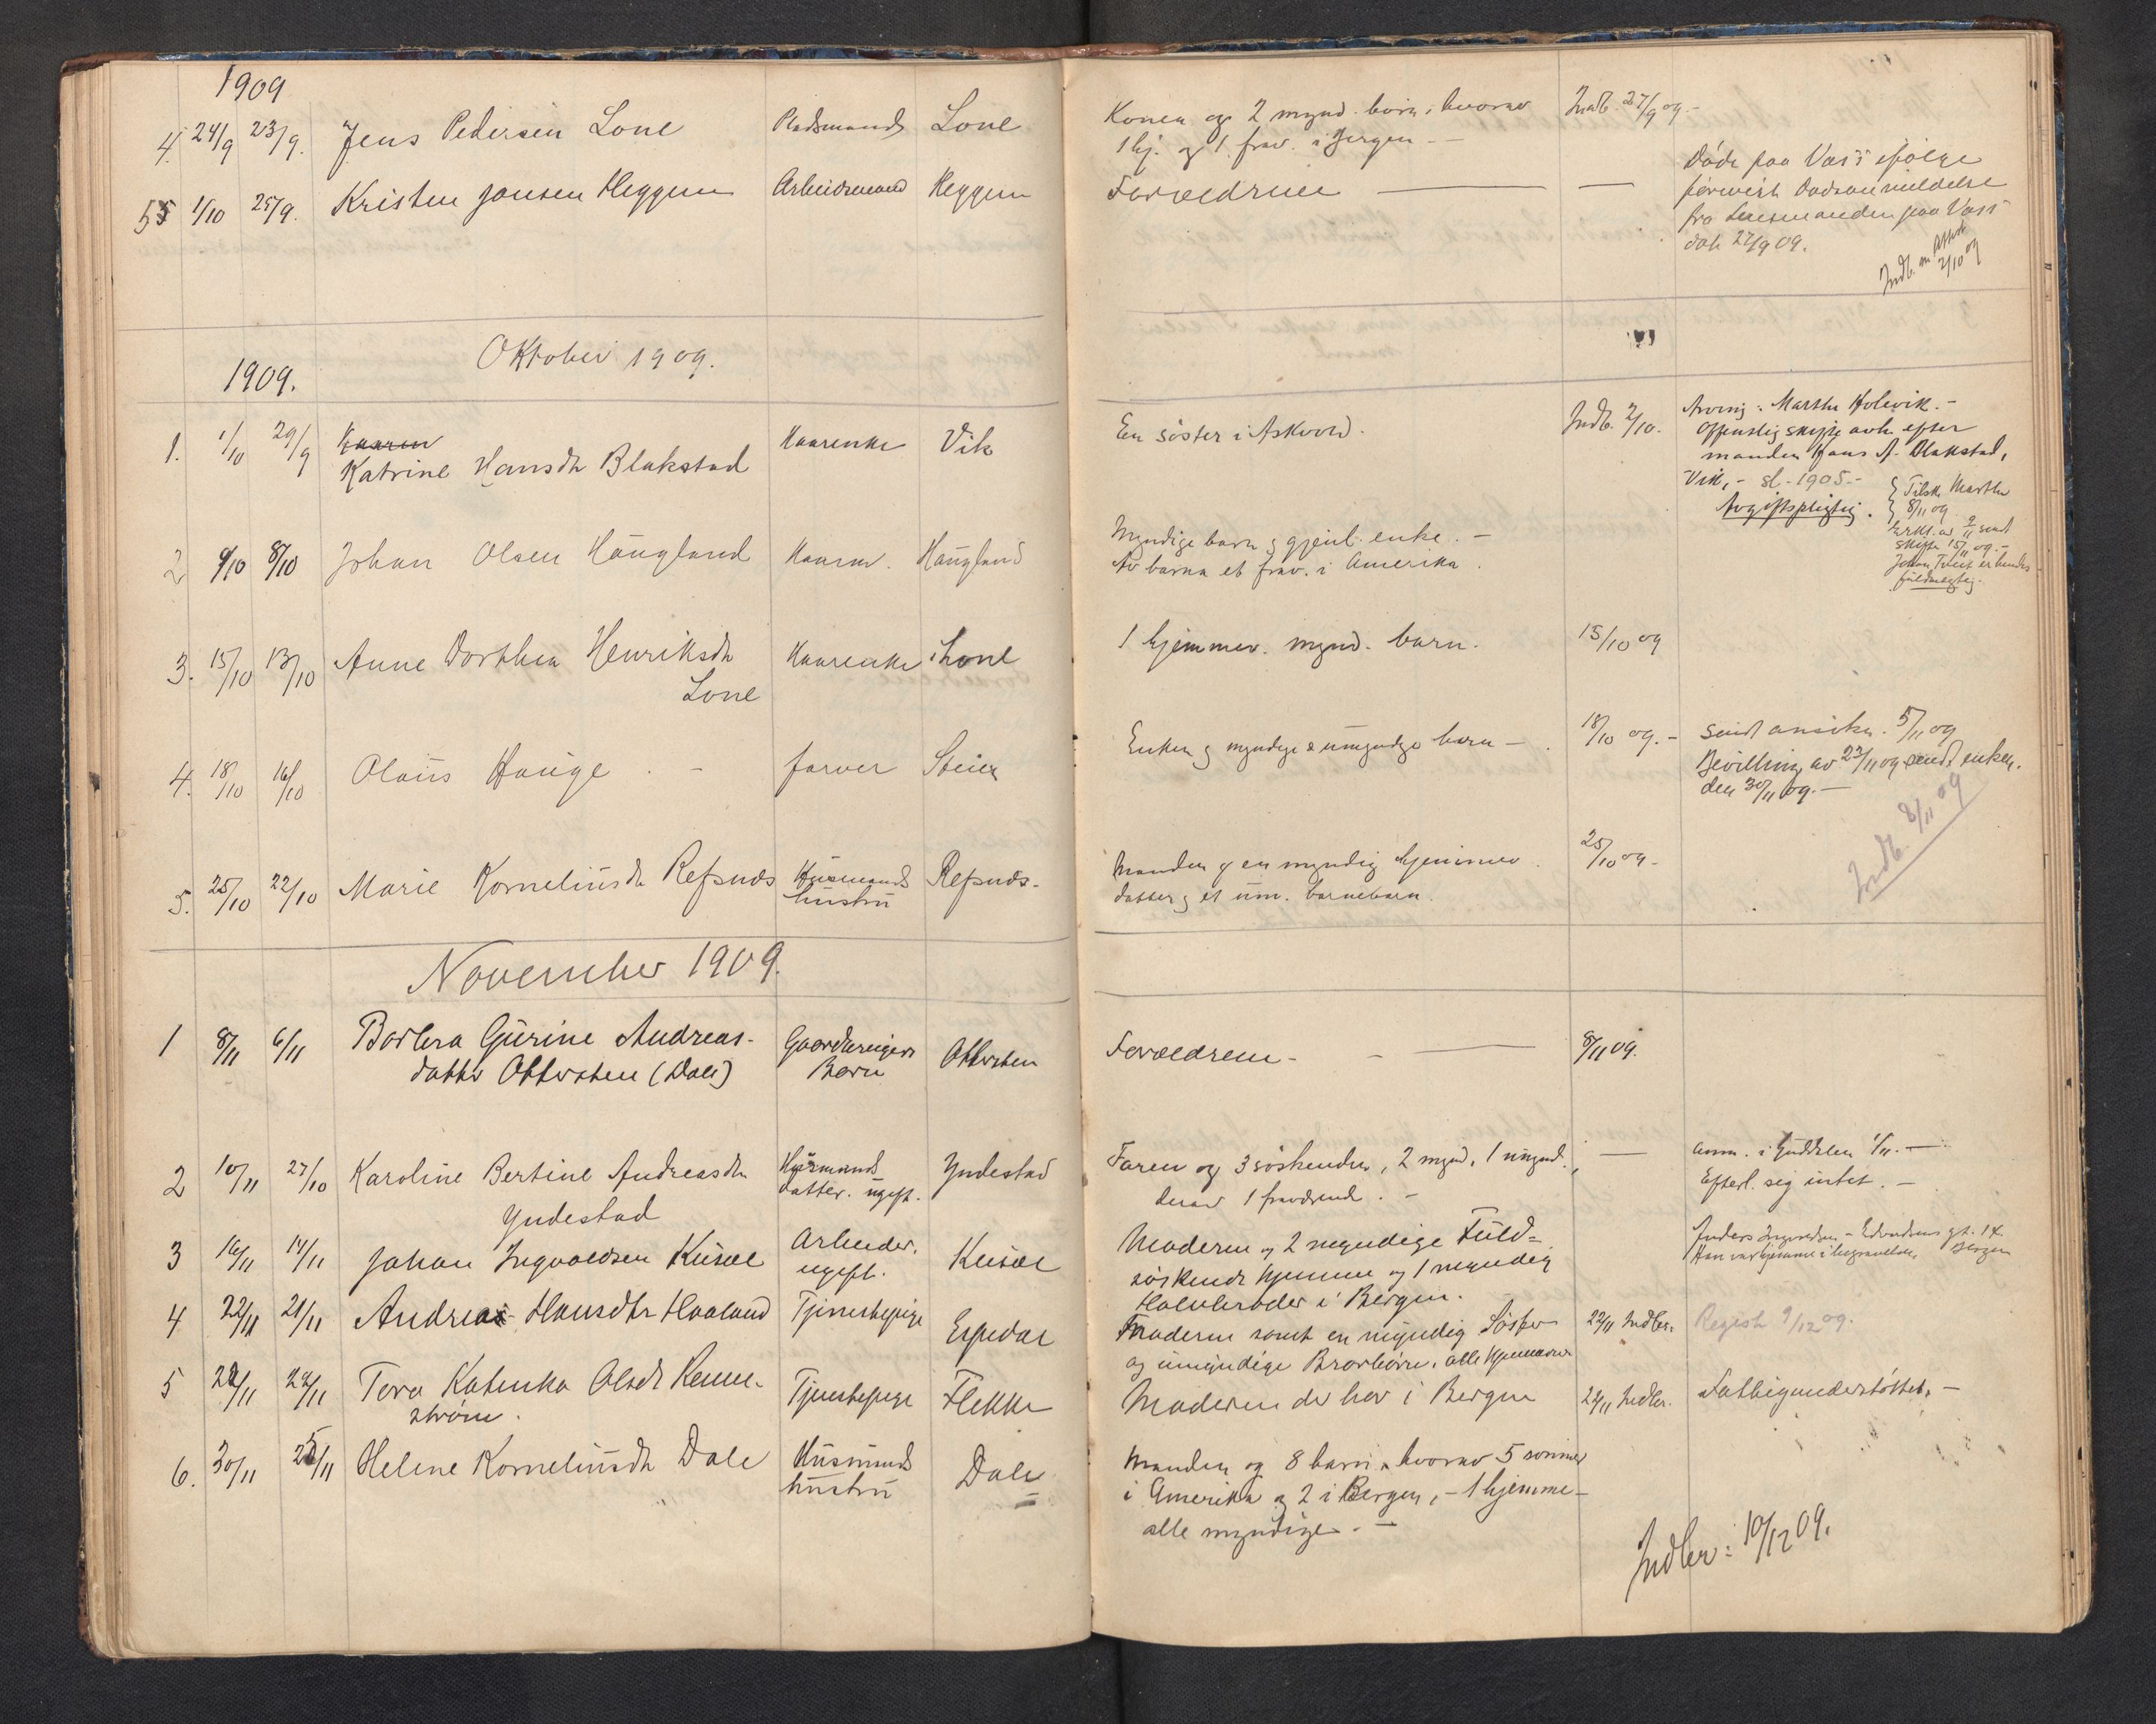 1909
4. 24/9 23/9. Jens Pedersen Lone Pladsmand Lone Konen og 2 mynd. børn, hvorav Indb. 27/9 09.-
1 hj. og 1 frav. i Bergen -
55 1/10 25/9. Kristen Jansen Heggum Arbeidsmand Heggum Forældrene — — Døde paa Voss ifølge
førevist Dødsanmeldelse
fra Lensmanden paa Voss
dat. 27/9 09.
Indb. m Attest
2/10 09
Oktober 1909.
1909.
1. 1/10 29/9 Kaaren
Katrine Hansdtr Blakstad Kaarenke Vik En søster i Askvold. Indb. 2/10. Arving: Marthe Holevik.-
Offentlig skifte avh. efter
manden Hans A. Blakstad,
Vik, - sl. 1905.-
Avgiftspligtig.
Tilsk. Marthe
8/11 09
Erkl. av 9/11 sendt
skifte 15/11 09.-
Johan Tveit er hendes
fuldmegtig.
2 9/10 8/10 Johan Olsen Haugland Kaarm. Haugland Myndige barn og gjenl. enke. -
Av barna et frav. i Amerika.
3. 15/10 13/10 Anne Dorthea Henriksdtr Kaarenke Lone 1 hjemmev. mynd. barn. 15/10 09
Lone
4. 18/10 16/10 Olaus Hauge. - farver Steien Enken og myndige & umyndige børn - 18/10 09.- Sendt ansøkn. 5/11 09
Bevilling av 23/11 09 sendt enken.
den 30/11 09.-
Indb. 8/11 09
5. 25/10 22/10 Marie Korneliusdtr Refsnes Husmands Refsnes. Manden og en myndig hjemmev. 25/10 09-
hustru datter og et um. barnebarn.
November 1909.
1 8/11 6/11 Barbra Gurine Andreas- Gaardbrugers Ottersten Forældrene - - — 8/11 09.
datter Ottersten (Dale) Barn
2 10/11 27/10 Karoline Bertine Andreasdtr Husmands Yndestad Faren og 3 søskender, 2 mynd. 1 umynd. — Anm. i Guddalen 1/11.-
datter. ugift. derav 1 fraværende. - Efterl. sig intet. -
Yndestad
3 16/11 14/11 Johan Ingvaldsen Kusæl Arbeider. Kusæl Moderen og 2 myndige Fuld-
ugift. søskende hjemme og 1 myndig
Halvbroder i Bergen.
Anders Ingvaldsen - Edvardsens gt. 14
Han var hjemme i begravelsen, Bergen
4 22/11 21/11 Andrea Hansdtr Haaland Tjenestepige Espedal Faderen samt en myndig Søster 22/11 Indber. Regist. 9/12 09.
og umyndige Brorbørn, alle hjemmev.
5 22/11 22/11 Tora Katinka Olsdtr Renne- Tjenestepige Flekke Moderen der bor i Bergen 22/11 Indber. Fattigunderstøttet, -
strøm.
6. 30/11 25/11 Helene Korneliusdtr Dale Husmands Dale Manden og 8 barn, hvorav 5 sønner
hustru i Amerika og 2 i Bergen, - 1 hjemme -
alle myndige. -
Indber: 10/12 09.